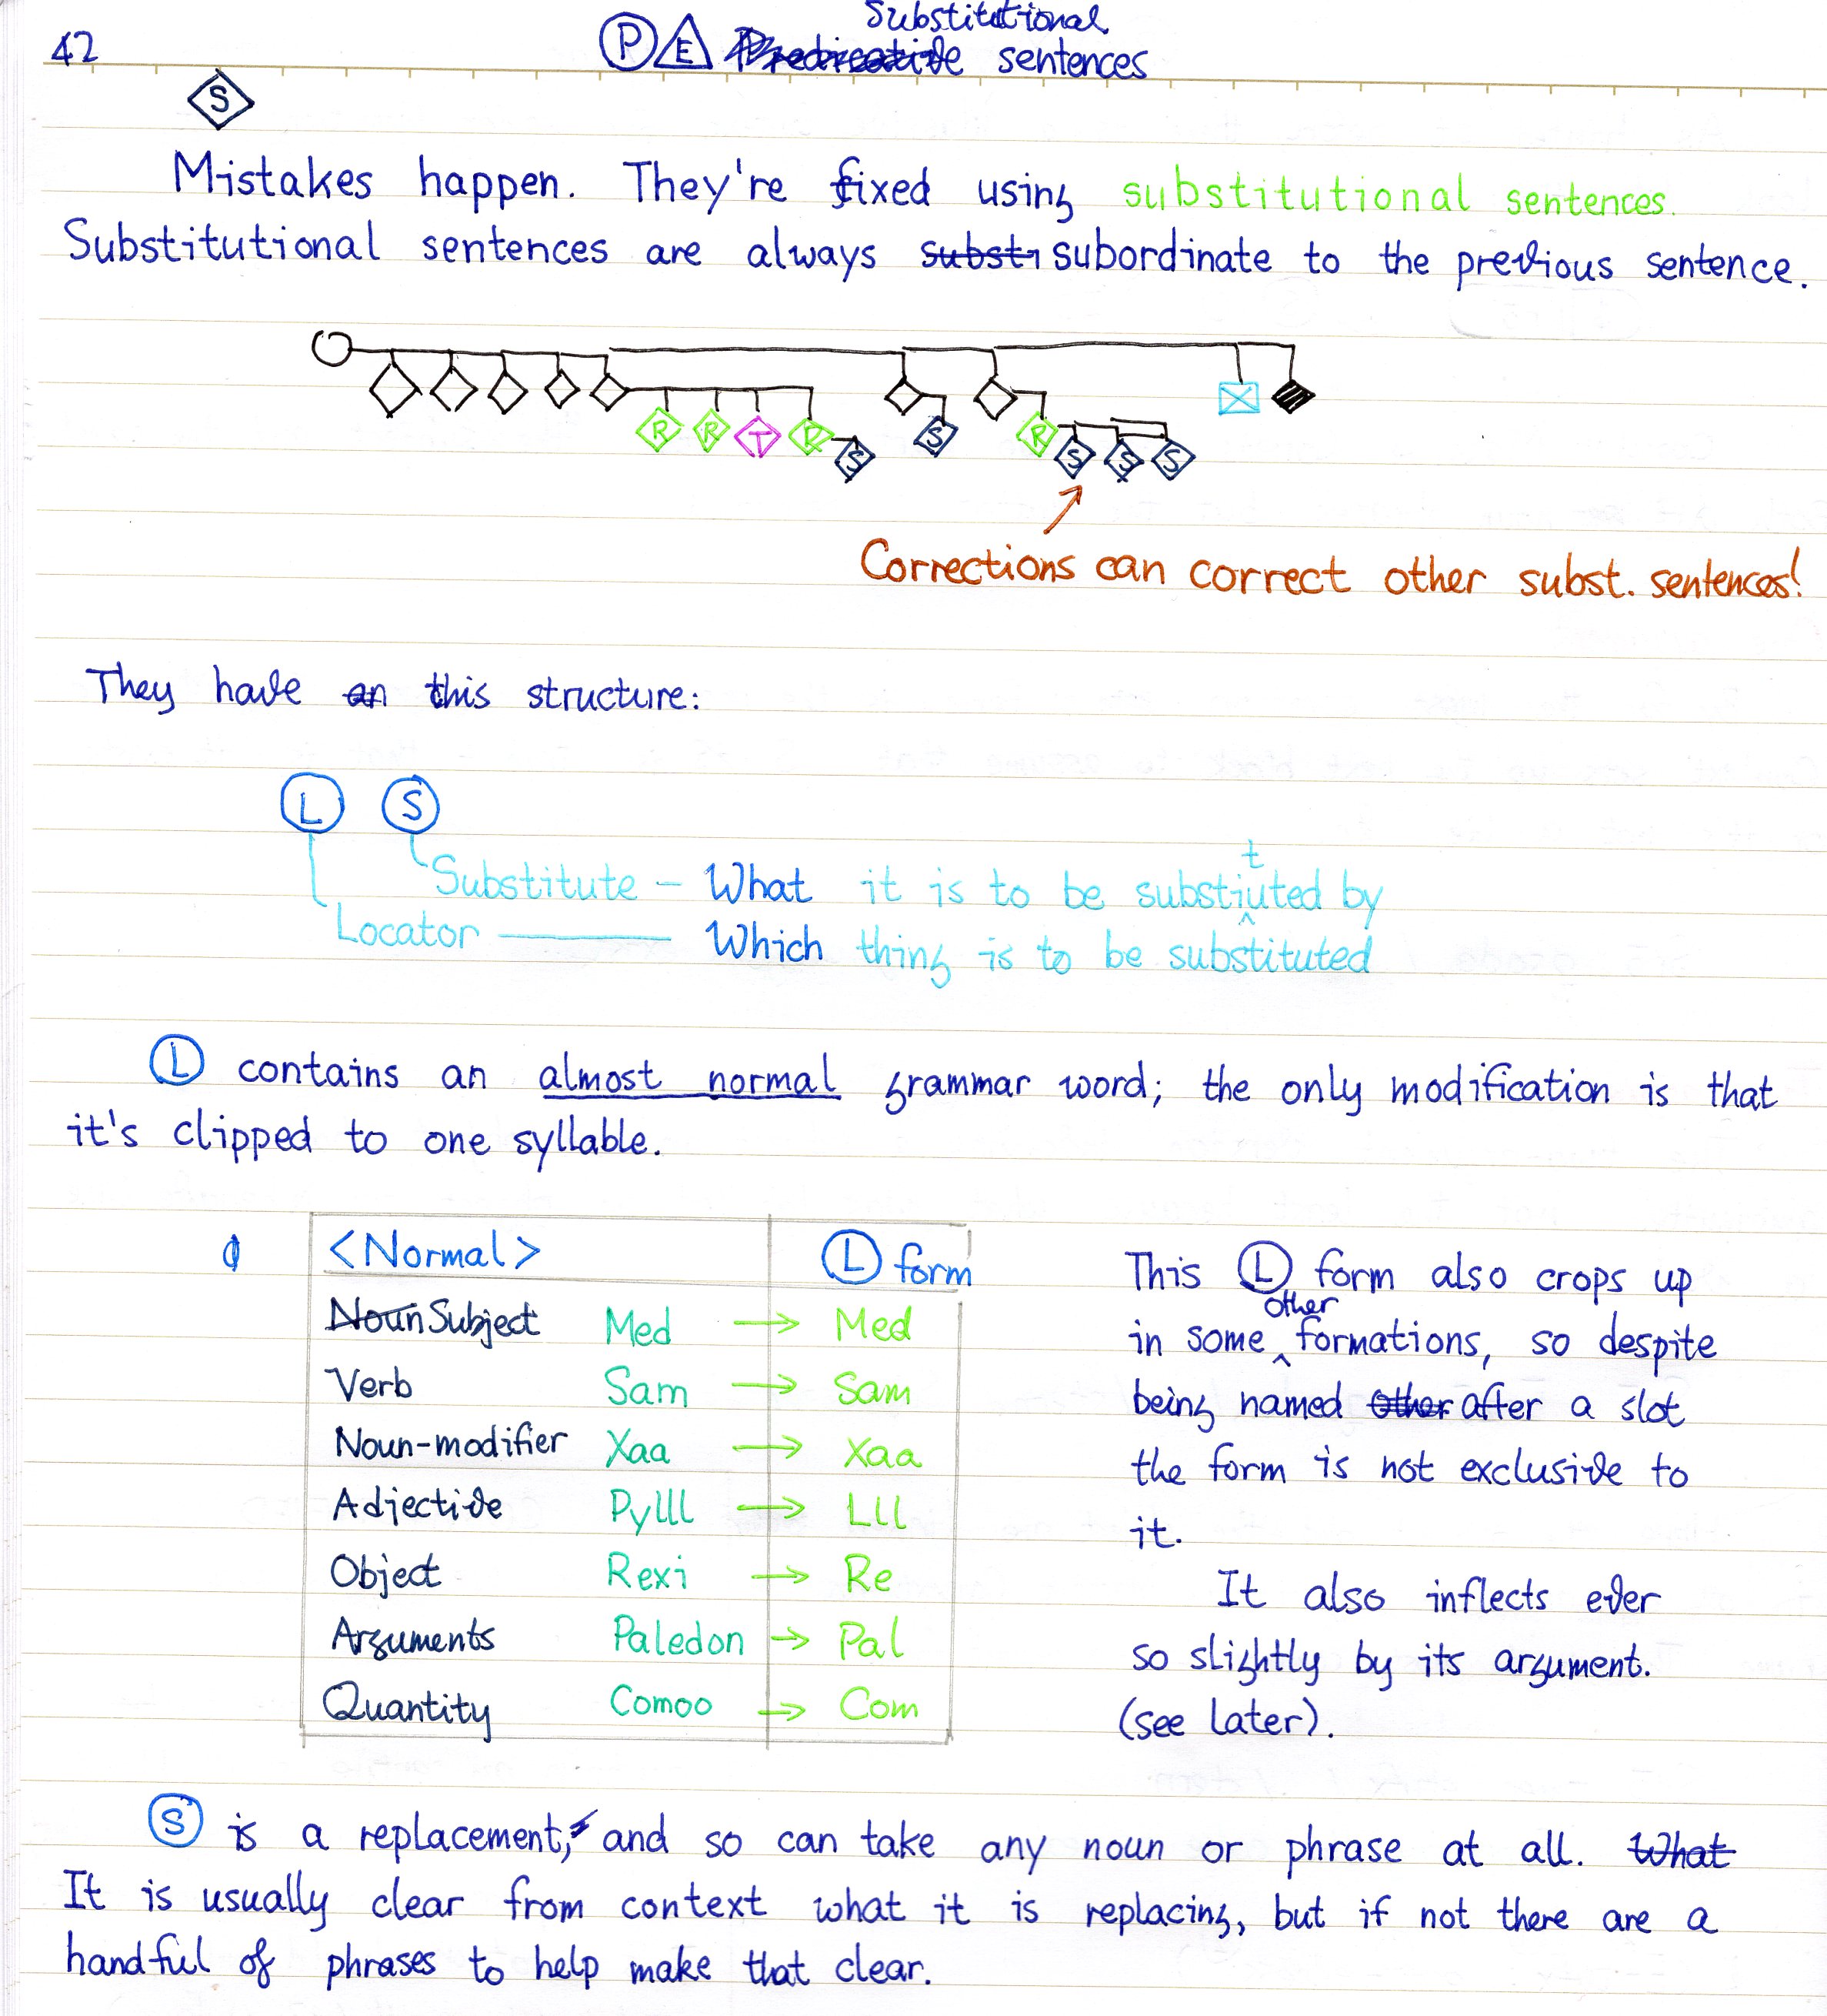 42
Substitutional
P E Predicative sentences
S
Mistakes happen. They're fixed using substitutional sentences.
Substitutional sentences are always substi subordinate to the previous sentence.
R R T R S S R S S S
Corrections can correct other subst. sentences!
They have an this structure:
L S
Substitute - What it is to be substituted by
Locator Which thing is to be substituted
L contains an almost normal grammar word; the only modification is that
it's clipped to one syllable.
<Normal> L form
Noun Subject Med → Med
Verb Sam → Sam
Noun-modifier Xaa → Xaa
Adjective Pylll → Lll
Object Rexi → Re
Arguments Paledon → Pal
Quantity Comoo → Com
This L form also crops up
in some other formations, so despite
being named other after a slot
the form is not exclusive to
it.
It also inflects ever
so slightly by its argument.
(see later).
S is a replacement, and so can take any noun or phrase at all. What
It is usually clear from context what it is replacing, but if not there are a
handful of phrases to help make that clear.